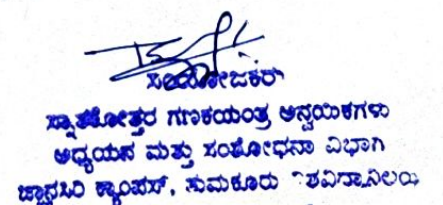 ಸಂಯೋಜಕರು
ಸ್ನಾತಕೋತ್ತರ ಗಣಕಯಂತ್ರ ಅನ್ವಯಿಕಗಳು
ಅಧ್ಯಯನ ಮತ್ತು ಸಂಶೋಧನಾ ವಿಭಾಗ
ಜ್ಞಾನಸಿರಿ ಕ್ಯಾಂಪಸ್, ತುಮಕೂರು